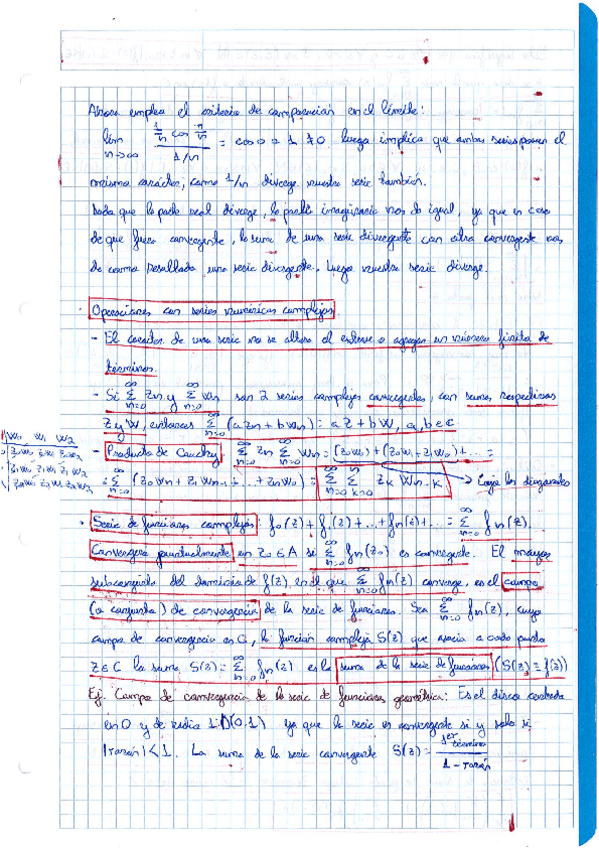 Ahora emplea el criterio de comparación en el límite:
lim n→∞ (1/n cos π/n)/(1/n) = cos 0 = 1 ≠ 0 luego implica que ambas series poseen el
mismo carácter, como 1/n diverge nuestra serie también.
Dado que la parte real diverge, la parte imaginaria nos da igual, ya que en caso
de que fuera convergente, la suma de una serie divergente con otra convergente nos
da como resultado una serie divergente. Luego nuestra serie diverge.
· Operaciones con series numéricas complejas
- El carácter de una serie no se altera al extraer o agregar un número finito de
términos.
- Si Σ_{n=0}^∞ Zn y Σ_{n=0}^∞ wn son 2 series complejas convergentes, con sumas respectivas
Z y W, entonces Σ_{n=0}^∞ (a Zn + b Wn) = a Z + b W, a, b ∈ C
- Producto de Cauchy: Σ_{n=0}^∞ Zn Σ_{n=0}^∞ Wn = (Z0W0) + (Z0W1 + Z1W0) + ... =
= Σ_{n=0}^∞ (Z0Wn + Z1Wn-1 + ... + ZnW0) = Σ_{n=0}^∞ Σ_{k=0}^n Zk Wn-k → Coge las diagonales
W0 W1 W2
Z0W0 Z0W1 Z0W2
Z1W0 Z1W1 Z1W2
Z2W0 Z2W1 Z2W2
· Serie de funciones complejas: f0(z) + f1(z) + ... + fn(z) + ... = Σ_{n=0}^∞ fn(z).
Convergerá puntualmente en Z0 ∈ A si Σ_{n=0}^∞ fn(Z0) es convergente. El mayor
subconjunto del dominio de f(z) en el que Σ_{n=0}^∞ fn(z) converge, es el campo
(o conjunto) de convergencia de la serie de funciones. Sea Σ_{n=0}^∞ fn(z), cuyo
campo de convergencia es C, la función compleja S(z) que asocia a cada punto
z ∈ C la suma S(z) = Σ_{n=0}^∞ fn(z) es la suma de la serie de funciones (S(z) = f(z))
Ej. Campo de convergencia de la serie de funciones geométrica: Es el disco centrado
en 0 y de radio 1: D(0,1) ya que la serie es convergente si y solo si
|razón| < 1. La suma de la serie convergente S(z) = 1er término / 1 - razón